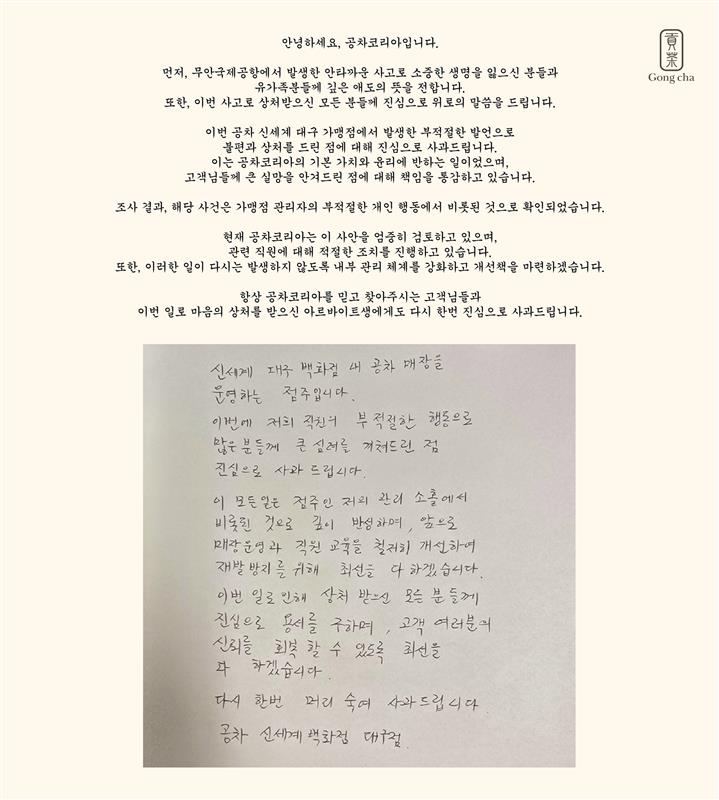 안녕하세요, 공차코리아입니다.
貢茶
Gong cha
먼저, 무안국제공항에서 발생한 안타까운 사고로 소중한 생명을 잃으신 분들과
유가족분들께 깊은 애도의 뜻을 전합니다.
또한, 이번 사고로 상처받으신 모든 분들께 진심으로 위로의 말씀을 드립니다.
이번 공차 신세계 대구 가맹점에서 발생한 부적절한 발언으로
불편과 상처를 드린 점에 대해 진심으로 사과드립니다.
이는 공차코리아의 기본 가치와 윤리에 반하는 일이었으며,
고객님들께 큰 실망을 안겨드린 점에 대해 책임을 통감하고 있습니다.
조사 결과, 해당 사건은 가맹점 관리자의 부적절한 개인 행동에서 비롯된 것으로 확인되었습니다.
현재 공차코리아는 이 사안을 엄중히 검토하고 있으며,
관련 직원에 대해 적절한 조치를 진행하고 있습니다.
또한, 이러한 일이 다시는 발생하지 않도록 내부 관리 체계를 강화하고 개선책을 마련하겠습니다.
항상 공차코리아를 믿고 찾아주시는 고객님들과
이번 일로 마음의 상처를 받으신 아르바이트생에게도 다시 한번 진심으로 사과드립니다.
신세계 대구 백화점 내 공차 매장을
운영하는 점주입니다.
이번에 저희 직원의 부적절한 행동으로
많은 분들께 큰 심려를 끼쳐드린 점
진심으로 사과 드립니다.
이 모든일은 점주인 저의 관리 소홀에서
비롯된 것으로 깊이 반성하며, 앞으로
매장운영과 직원 교육을 철저히 개선하여
재발 방지를 위해 최선을 다 하겠습니다.
이번 일로 인해 상처 받으신 모든 분들께
진심으로 용서를 구하며, 고객 여러분의
신뢰를 회복 할 수 있도록 최선을
다 하겠습니다.
다시 한번 머리 숙여 사과드립니다.
공차 신세계백화점 대구점.